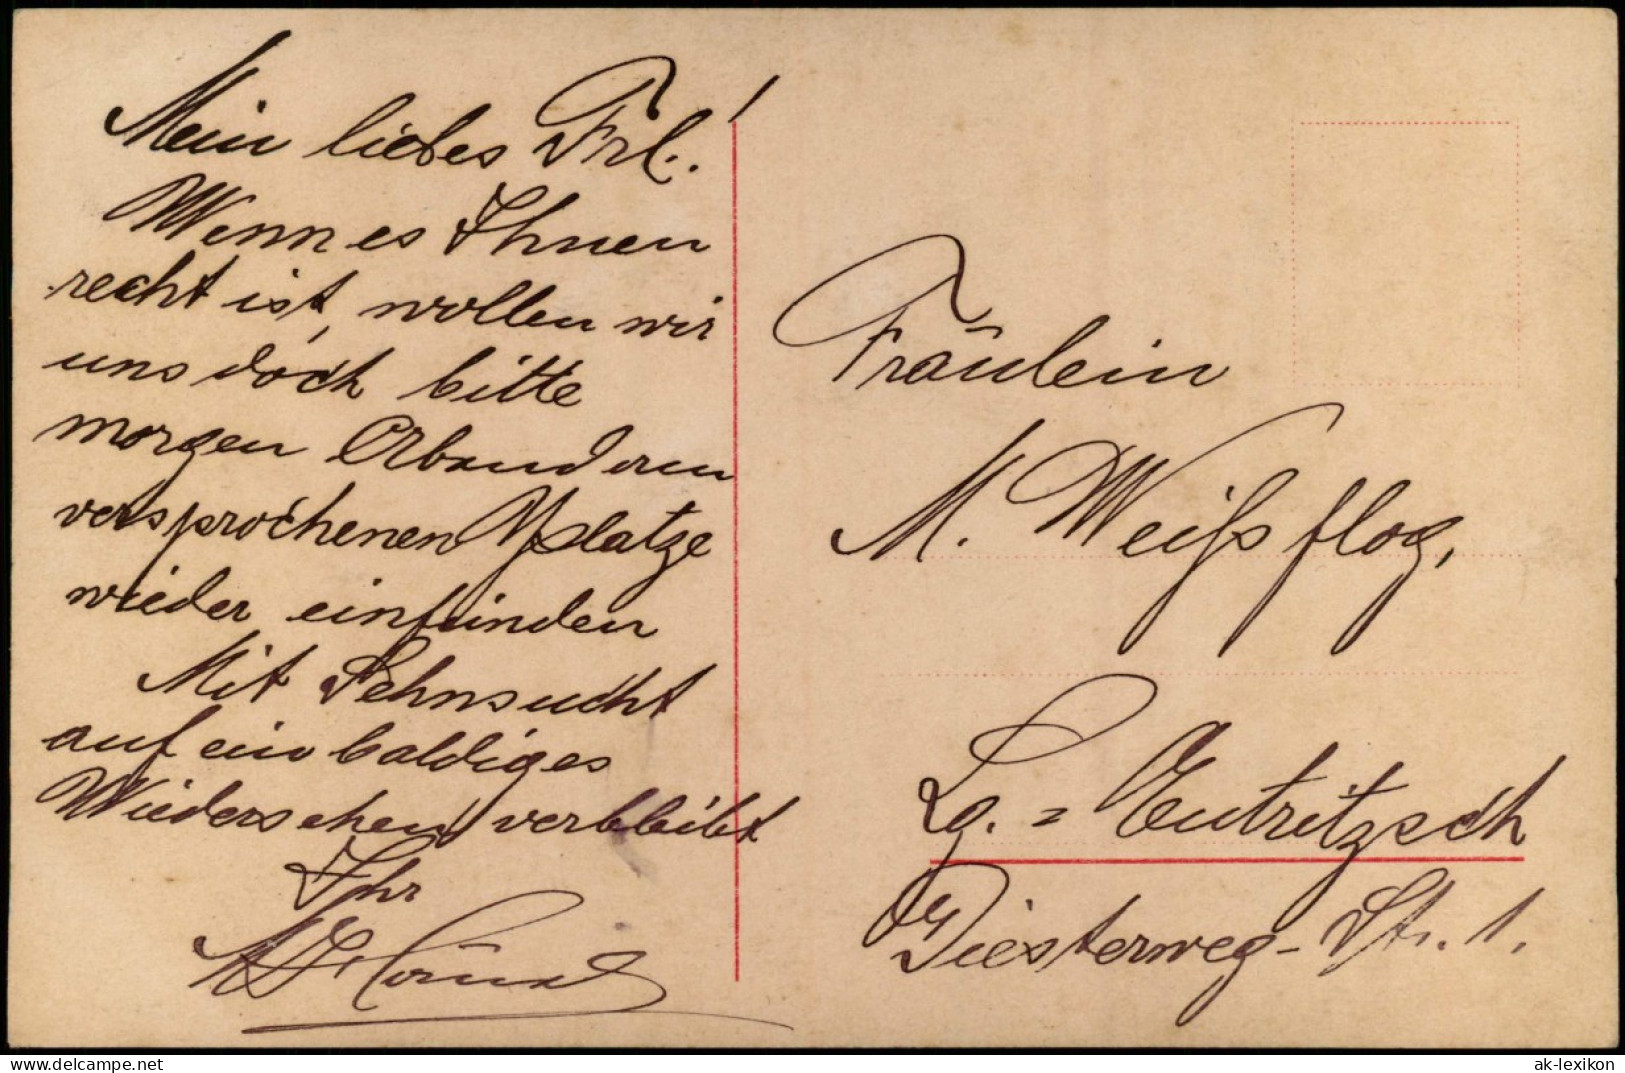 Mein liebes Frl.!
Wenn es Ihnen
recht ist, wollen wir
uns doch bitte
morgen Abend am
versprochenen Platze
wieder einfinden
Mit Sehnsucht
auf ein baldiges
Wiedersehen verbleibt
Ihr
Fräulein
M. Weißflog,
Lg. = Eutritzsch
Diesterweg-Str. 1.
www.delcampe.net
ak-lexikon